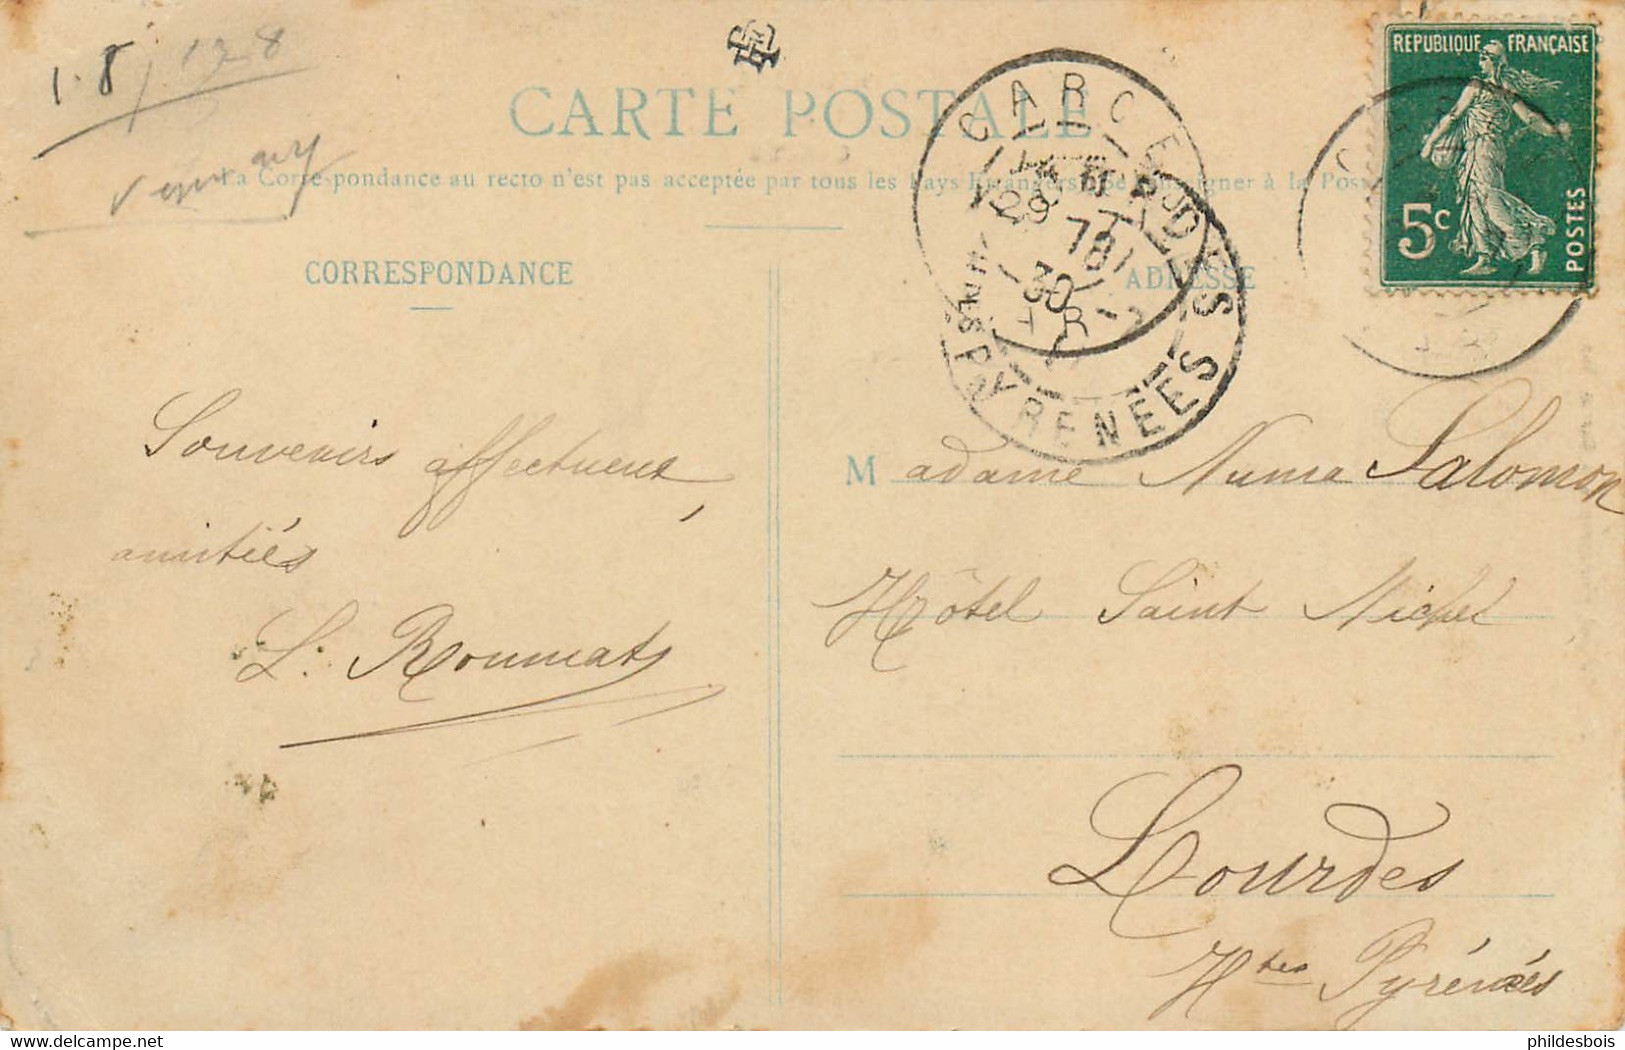 1.8 / 128
CARTE POSTALE
La Correspondance au recto n'est pas acceptée par tous les Pays Etrangers
CORRESPONDANCE
ADRESSE
REPUBLIQUE FRANÇAISE
5c
POSTES
LOURDES
PYRENEES
Souvenirs affectueux,
amitiés
L. Roumat
Madame Numa Salomon
Hôtel Saint Michel
Lourdes
Htes Pyrénées
phildesbois